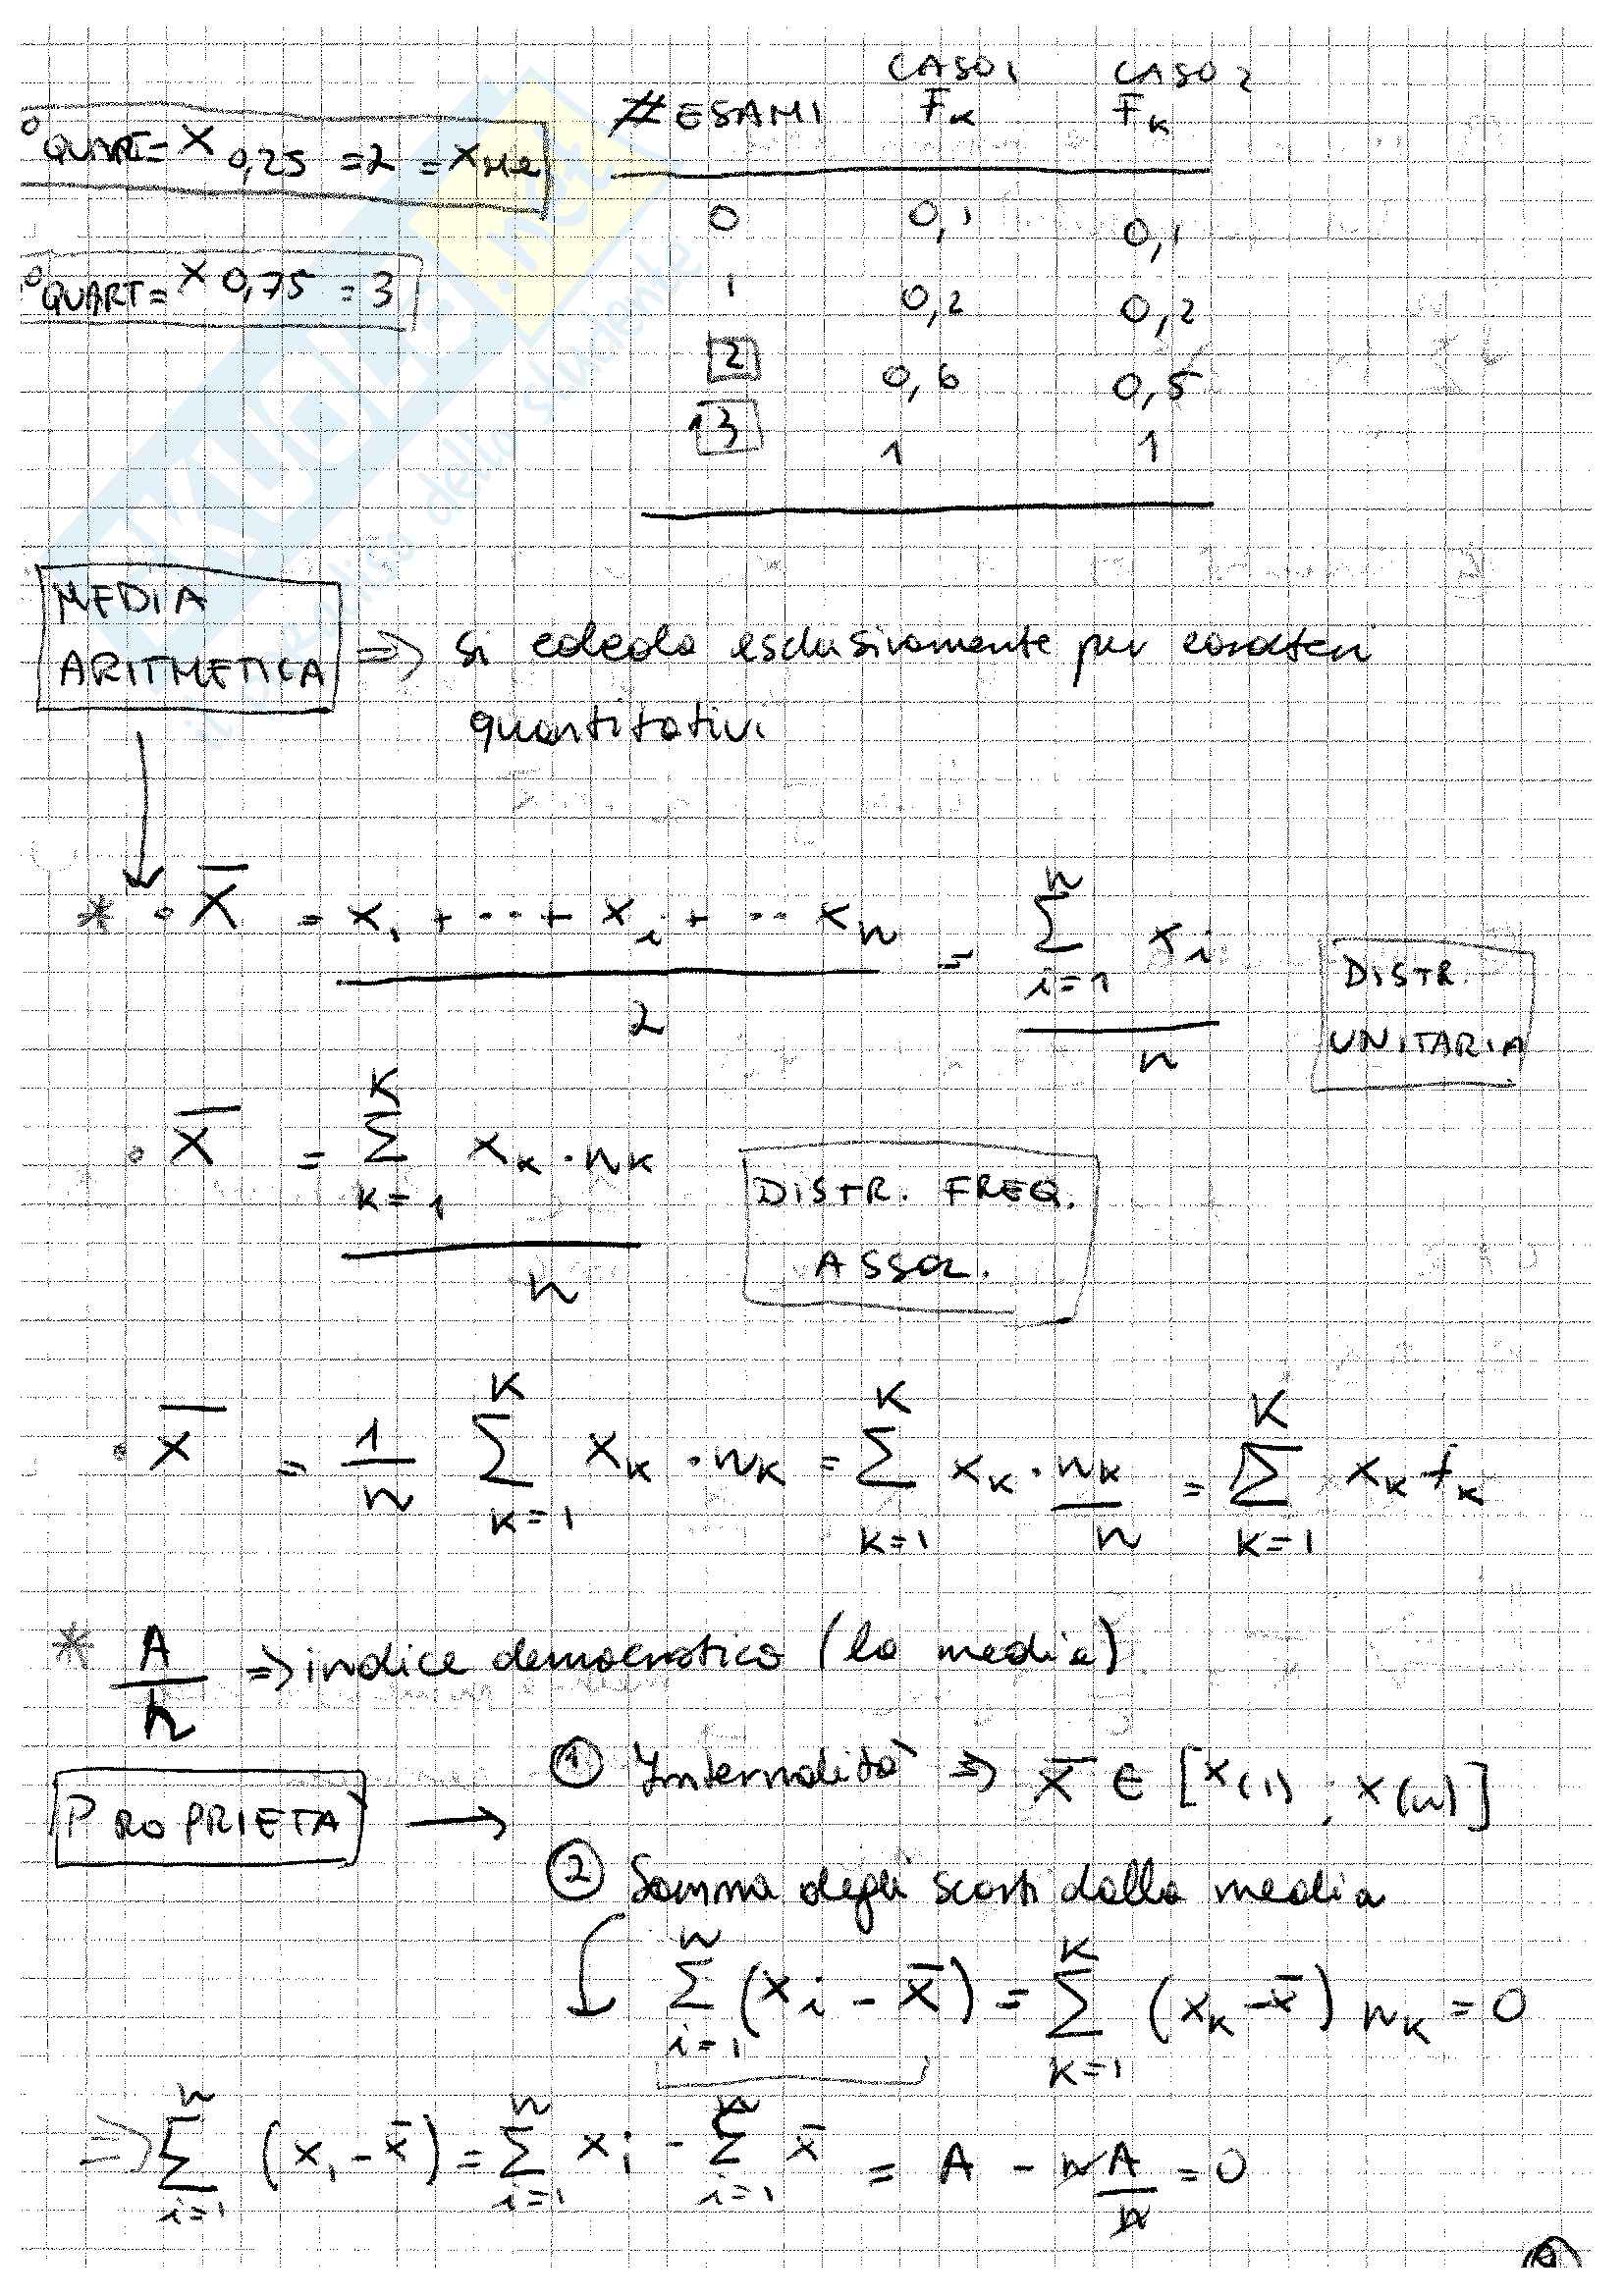 CASO 1 CASO 2
# ESAMI Fk Fk
° QUART = X 0,25 = 2 = XMe
0 0,1 0,1
° QUART = X 0,75 = 3
1 0,2 0,2
2 0,6 0,5
3 1 1
MEDIA ARITMETICA => si calcola esclusivamente per caratteri
quantitativi
* • X̄ = (x₁ + ··· + xᵢ + ·· xₙ) / 2 = (Σ i=1 n xᵢ) / n DISTR. UNITARIA
• X̄ = (Σ k=1 K xₖ · nₖ) / n DISTR. FREQ. ASSOL.
• X̄ = 1/n Σ k=1 K xₖ · nₖ = Σ k=1 K xₖ · nₖ/n = Σ k=1 K xₖ fₖ
* A/n => indice democratico (la media)
PROPRIETÀ → ① Internalità => X̄ ∈ [x(1) ; x(n)]
② Somma degli scarti dalla media
Σ i=1 n (xᵢ - x̄) = Σ k=1 K (xₖ - x̄) nₖ = 0
=> Σ i=1 n (xᵢ - x̄) = Σ i=1 n xᵢ - Σ i=1 n x̄ = A - n A/n = 0